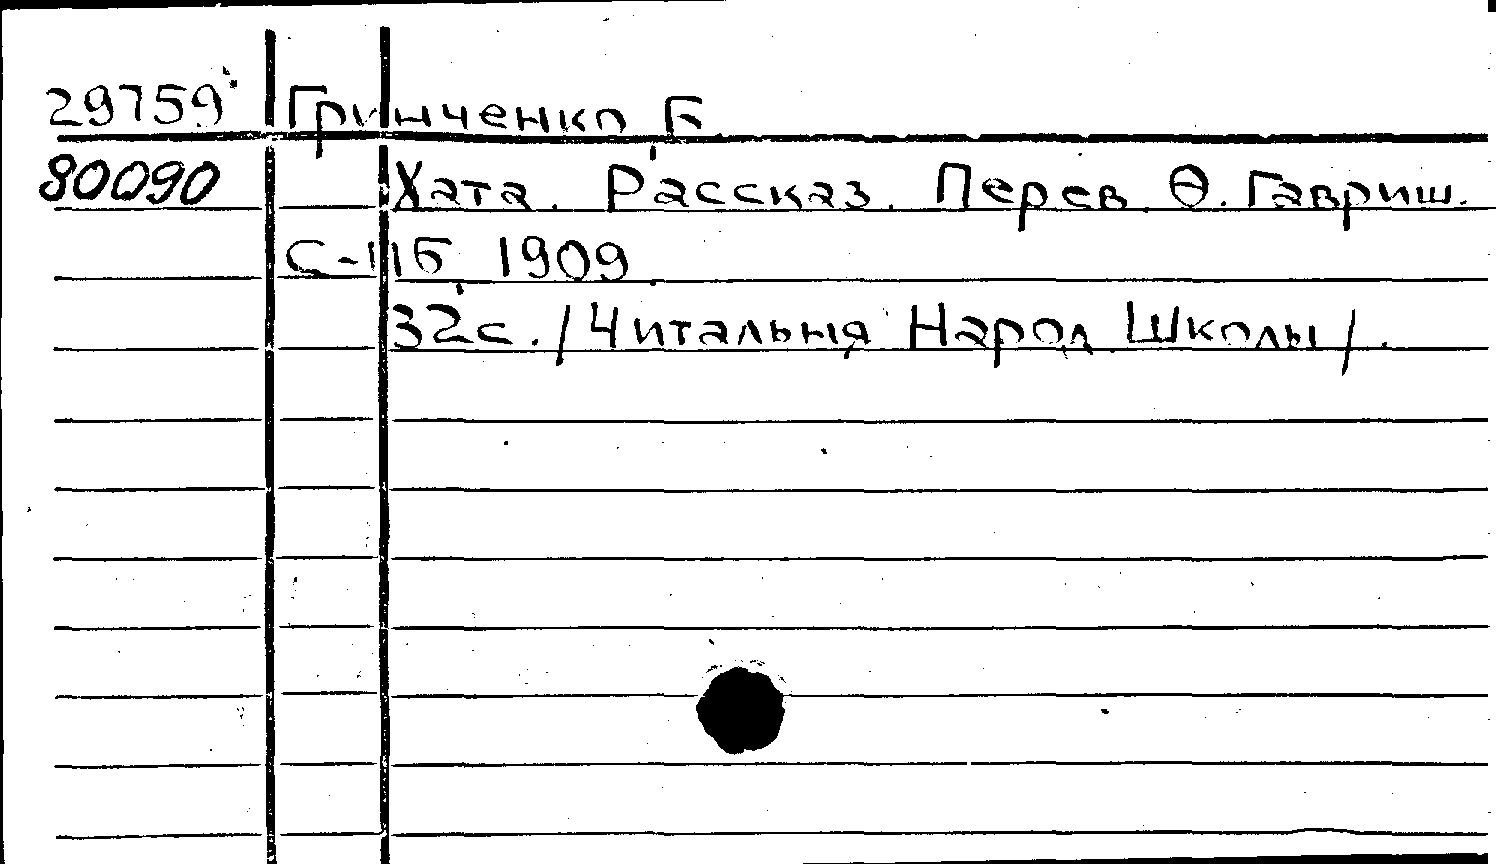 29759 Гринченко Б
80090 Хата. Рассказ. Перев. Ѳ. Гавриш.
С-ПБ 1909
32с. /Читальня Народ Школы/.